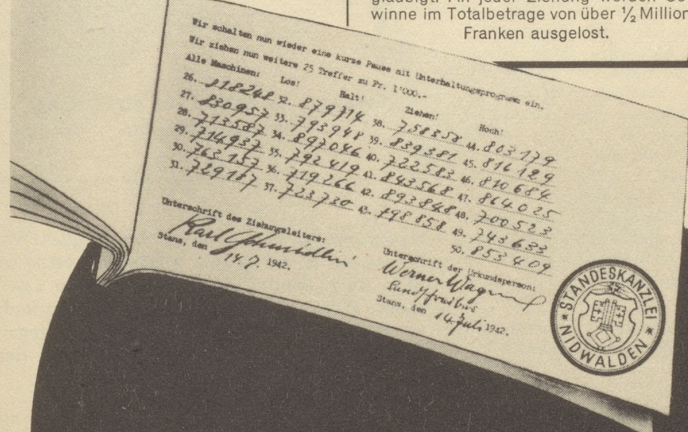 winne im Totalbetrage von über ½ Million
Franken ausgelost.
Wir schalten nun wieder eine kurze Pause mit Unterhaltungsprogramm ein.
Wir ziehen nun weitere 25 Treffer zu Fr. 1'000.-
Alle Maschinen: Los! Halt! Ziehen! Hoch!
26. 818248 32. 879714 38. 758358 44. 803179
27. 830957 33. 793948 39. 839381 45. 816129
28. 713587 34. 897046 40. 722583 46. 810684
29. 714937 35. 792419 41. 843568 47. 864025
30. 763157 36. 719266 42. 893848 48. 700523
31. 37. 723730 43. 798858 49. 743633
50. 853409
Unterschrift des Ziehungsleiters:
Karl
Stans, den 14.7. 1942.
Unterschrift der Urkundsperson:
Werner Wagner
Stans, den 14. Juli 1942.
STANDESKANZLEI
NIDWALDEN